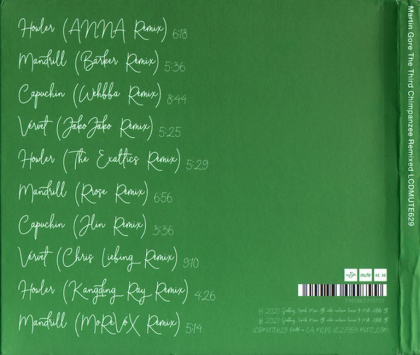 Howler (ANNA Remix) 6:18
Mandrill (Barker Remix) 5:36
Capuchin (Wehbba Remix) 8:44
Vervet (JakoJako Remix) 5:25
Howler (The Exaltics Remix) 5:29
Mandrill (Rrose Remix) 6:56
Capuchin (Jlin Remix) 3:36
Vervet (Chris Liebing Remix) 9:10
Howler (Kangding Ray Remix) 4:26
Mandrill (MoReVoX Remix) 5:14
Martin Gore The Third Chimpanzee Remixed LCDMUTE629
mute